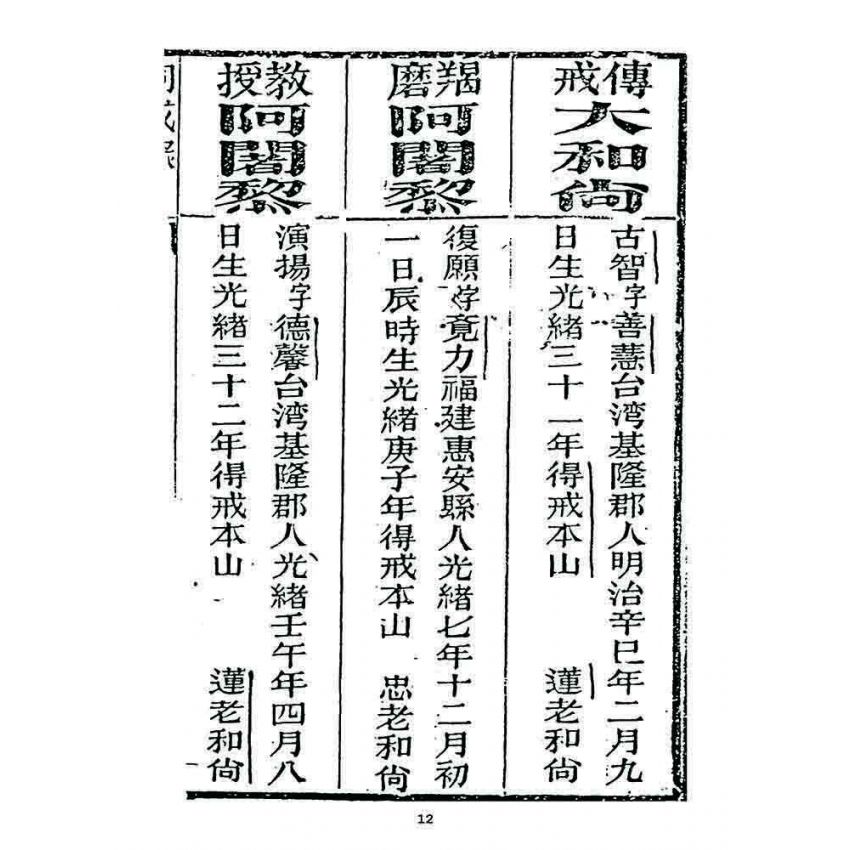 傳戒
大和尙
古智字善慧台湾基隆郡人明治辛巳年二月九
日生光緒三十一年得戒本山 蓮老和尙
羯磨
阿闍黎
復願字覔力福建惠安縣人光緒七年十二月初
一日辰時生光緒庚子年得戒本山 忠老和尙
教授
阿闍黎
演揚字德馨台湾基隆郡人光緒壬午年四月八
日生光緒三十二年得戒本山 蓮老和尙
12